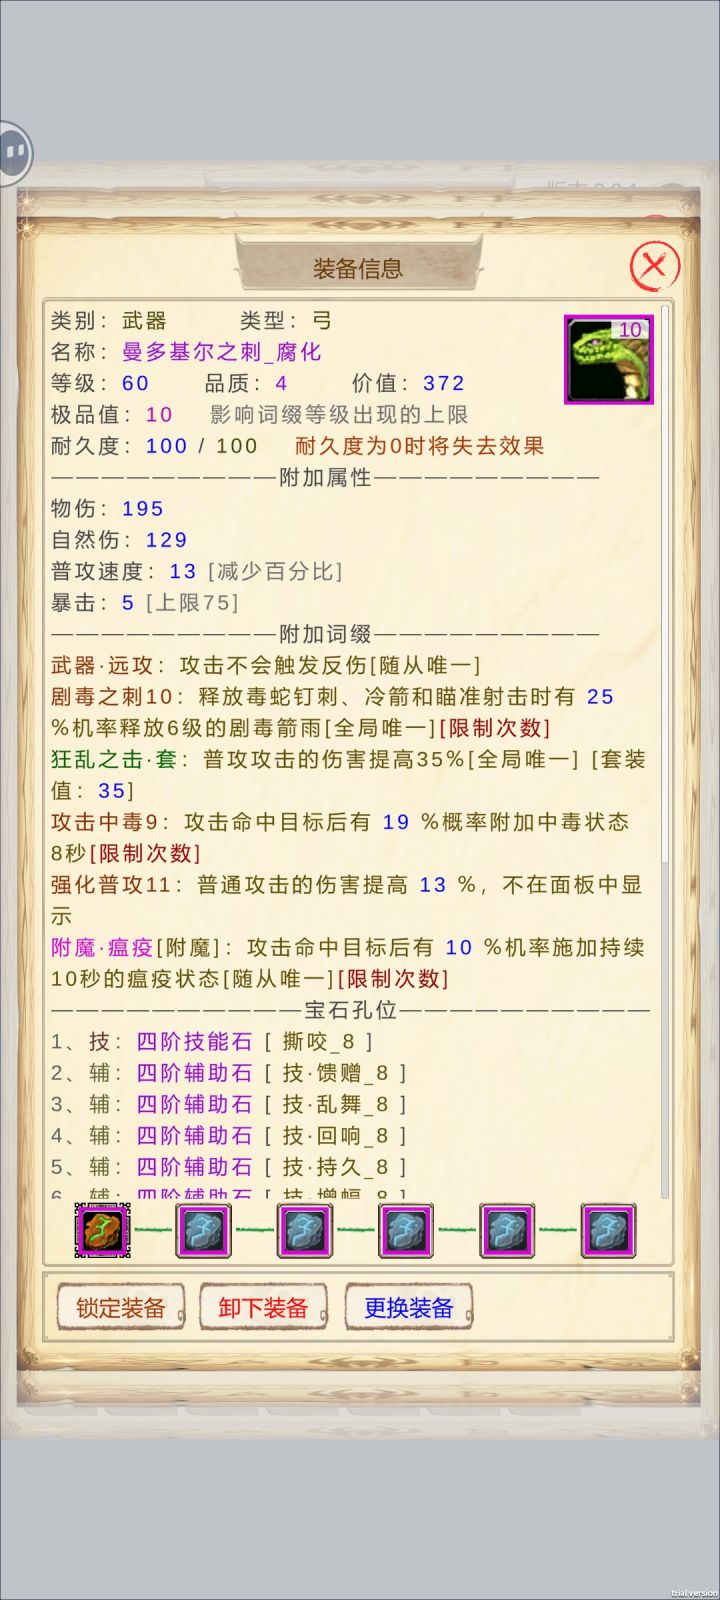 装备信息
类别：武器 类型：弓
名称：曼多基尔之刺_腐化
10
等级：60 品质：4 价值：372
极品值：10 影响词缀等级出现的上限
耐久度：100 / 100 耐久度为0时将失去效果
—————————附加属性—————————
物伤：195
自然伤：129
普攻速度：13 [减少百分比]
暴击：5 [上限75]
—————————附加词缀—————————
武器·远攻：攻击不会触发反伤[随从唯一]
剧毒之刺10：释放毒蛇钉刺、冷箭和瞄准射击时有 25
%机率释放6级的剧毒箭雨[全局唯一][限制次数]
狂乱之击·套：普攻攻击的伤害提高35%[全局唯一] [套装
值：35]
攻击中毒9：攻击命中目标后有 19 %概率附加中毒状态
8秒[限制次数]
强化普攻11：普通攻击的伤害提高 13 %，不在面板中显
示
附魔·瘟疫[附魔]：攻击命中目标后有 10 %机率施加持续
10秒的瘟疫状态[随从唯一][限制次数]
——————————宝石孔位——————————
1、技：四阶技能石 [ 撕咬_8 ]
2、辅：四阶辅助石 [ 技·馈赠_8 ]
3、辅：四阶辅助石 [ 技·乱舞_8 ]
4、辅：四阶辅助石 [ 技·回响_8 ]
5、辅：四阶辅助石 [ 技·持久_8 ]
6、辅：四阶辅助石 [ 技·增幅_8 ]
锁定装备 卸下装备 更换装备
trial version